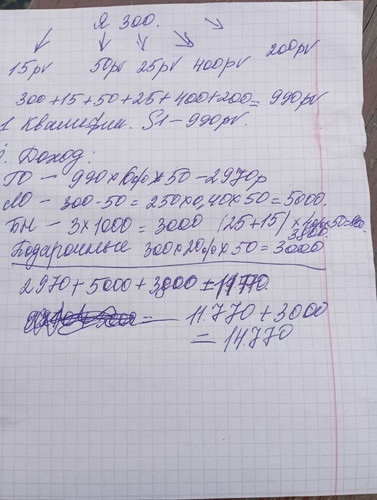 Я 300.
15 pv 50 pv 25 pv 400 pv 200 pv
300 + 15 + 50 + 25 + 400 + 200 = 990 pv
1 Квалифик. S1 - 990 pv.
Доход:
ГО - 990 х 6% х 50 - 2970 р
ЛО - 300 - 50 = 250 х 0,40 х 50 = 5000.
БН - 3 х 1000 = 3000 (25 + 15) х 40% х 50 = 800
3800
Подарочные 300 х 20% х 50 = 3000
2970 + 5000 + 3800 = 11770.
= 11.770 + 3000
= 14770